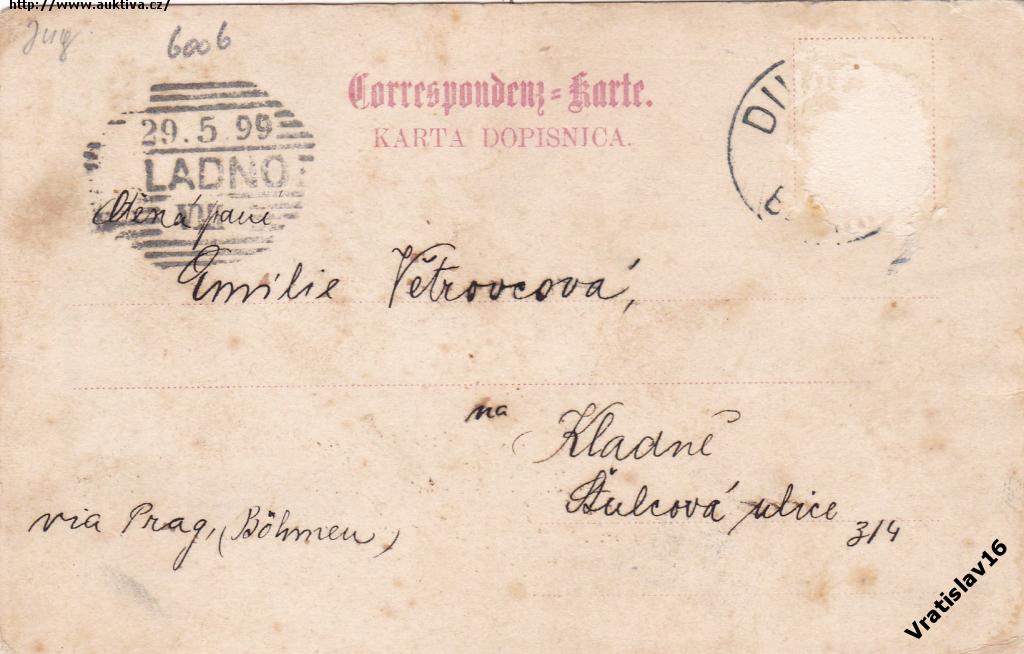 http://www.auktiva.cz/
Jug.
6006
Correspondenz-Karte.
KARTA DOPISNICA.
29.5.99
LADNO
DI
Ctěná paní
Emilie Větrovcová,
na
Kladně
Štulcová ulice
314
via Prag, (Böhmen)
Vratislav16